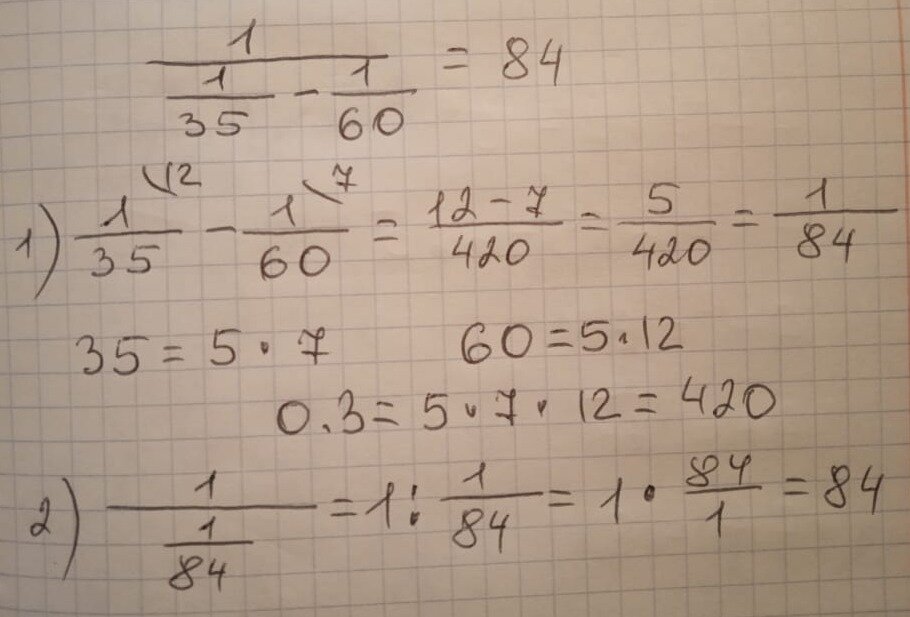 1/(1/35 - 1/60) = 84
1) 1\12/35 - 1\7/60 = (12-7)/420 = 5/420 = 1/84
35 = 5 · 7   60 = 5 · 12
О.З = 5 · 7 · 12 = 420
2) 1/(1/84) = 1 : 1/84 = 1 · 84/1 = 84